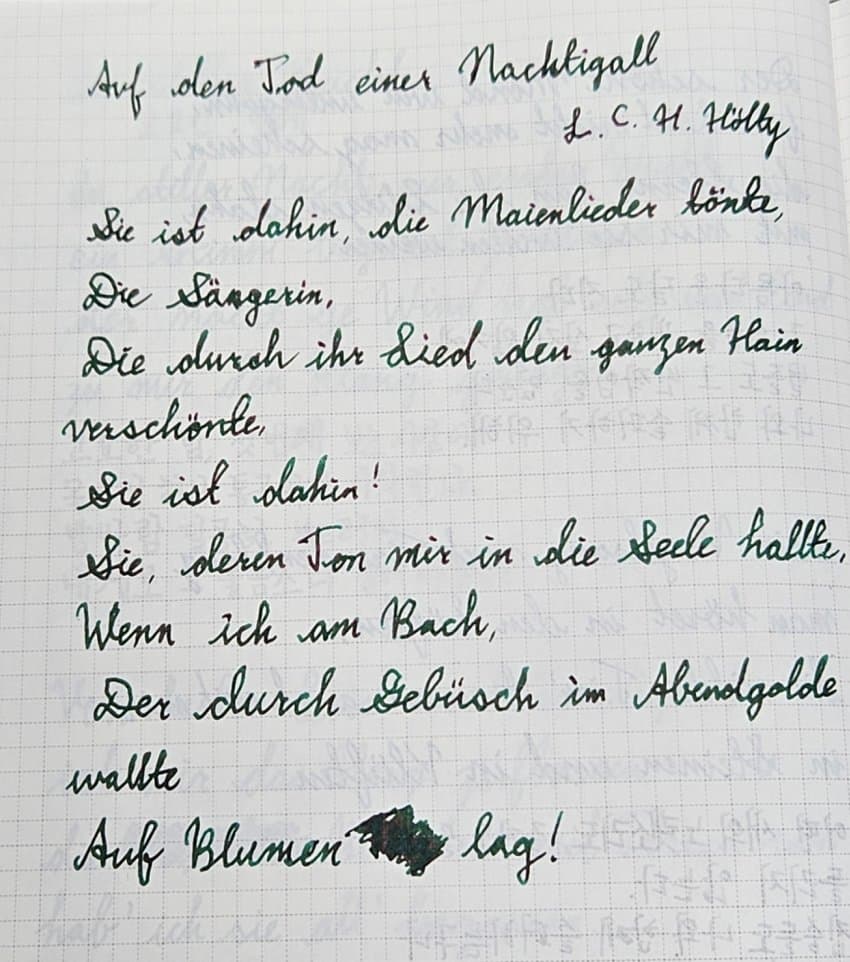 Auf den Tod einer Nachtigall
L. C. H. Hölty
Sie ist dahin, die Maienlieder tönte,
Die Sängerin,
Die durch ihr Lied den ganzen Hain
verschönte,
Sie ist dahin!
Sie, deren Ton mir in die Seele hallte,
Wenn ich am Bach,
Der durch Gebüsch im Abendgolde
wallte
Auf Blumen lag!